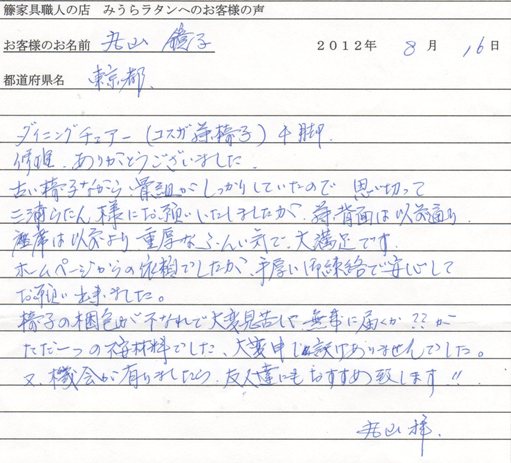 籐家具職人の店 みうらラタンへのお客様の声
お客様のお名前 丸山 鏡子 2012年 8月 16日
都道府県名 東京都
ダイニングチェアー(コスガ籐椅子)4脚
修理、ありがとうございました
古い椅子ながら、骨組がしっかりしていたので 思い切って
三浦らたん様にお願いいたしましたが、籐背面は以前通り、
座席は以前より重厚なふんい気で、大満足です。
ホームページからの依頼でしたが、手厚い御連絡で安心して
お願い出来ました。
椅子の梱包が不なれで大変見苦しく 無事に届くか??が
ただ一つの 材料でした、大変申し訳けありませんでした。
又、機会が有りましたら、友人達にもおすすめ致します!!
丸山